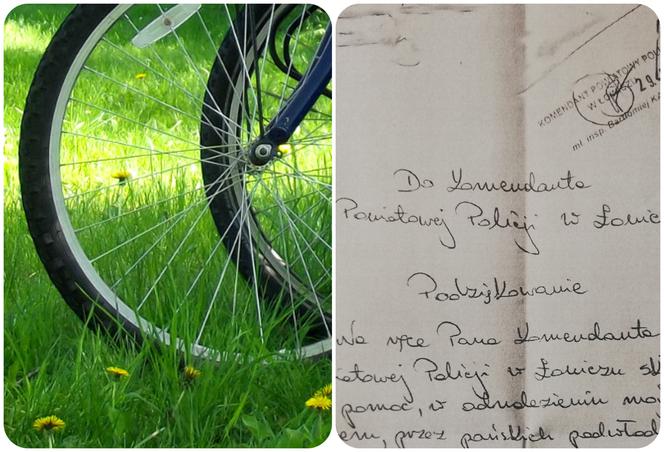 KOMENDANT POWIATOWY POL
W ŁOWICZU
29
mł. insp. Bartłomiej KA
Do Komendanta
Powiatowej Policji w Łowic
Podziękowanie
Na ręce Pana Komendanta
iatowej Policji w Łowiczu sk
pomoc, w odnalezieniu mo
em, przez pańskich podwład